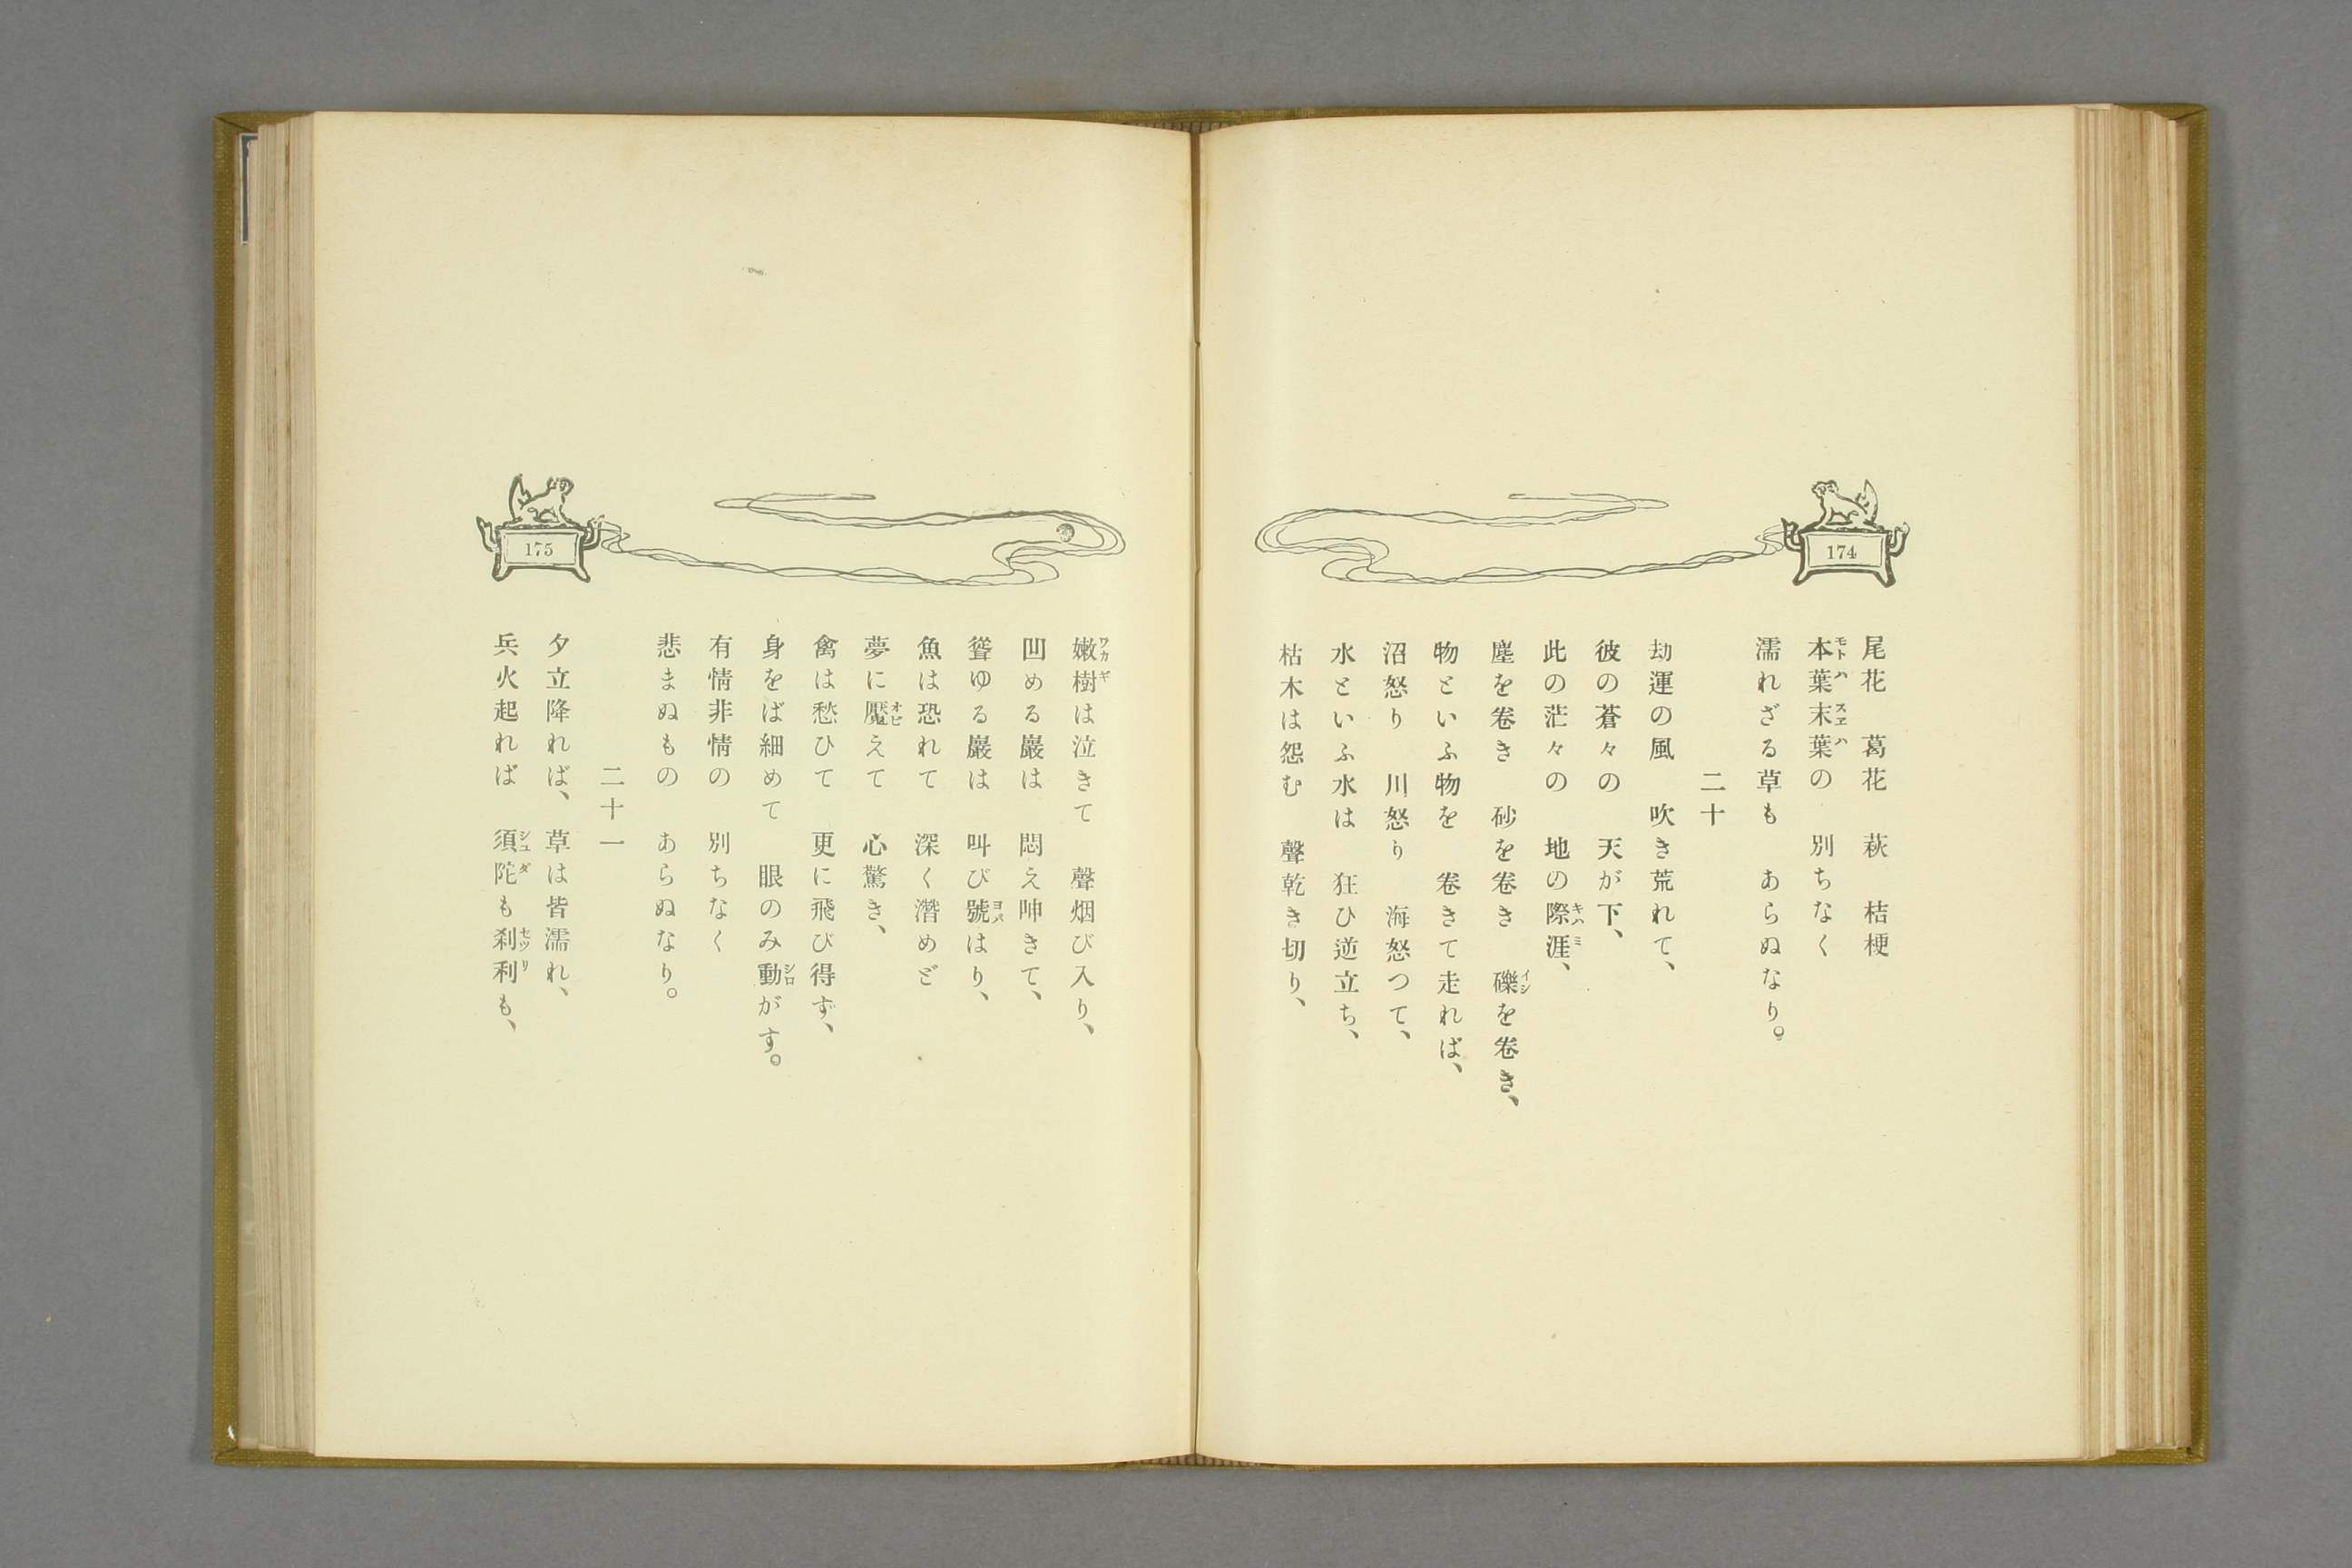 174
尾花　葛花　萩　桔梗
本葉末葉の　別ちなく
濡れざる草も　あらぬなり。
二十
劫運の風　吹き荒れて、
彼の蒼々の　天が下、
此の茫々の　地の際涯、
塵を卷き　砂を卷き　礫を卷き、
物といふ物を　卷きて走れば、
沼怒り　川怒り　海怒つて、
水といふ水は　狂ひ逆立ち、
枯木は怨む　聲乾き切り、
175
嫩樹は泣きて　聲烟び入り、
凹める巖は　悶え呻きて、
聳ゆる巖は　叫び號はり、
魚は恐れて　深く潛めど
夢に魘えて　心驚き、
禽は愁ひて　更に飛び得ず、
身をば細めて　眼のみ動がす。
有情非情の　別ちなく
悲まぬもの　あらぬなり。
二十一
夕立降れば、草は皆濡れ、
兵火起れば　須陀も刹利も、